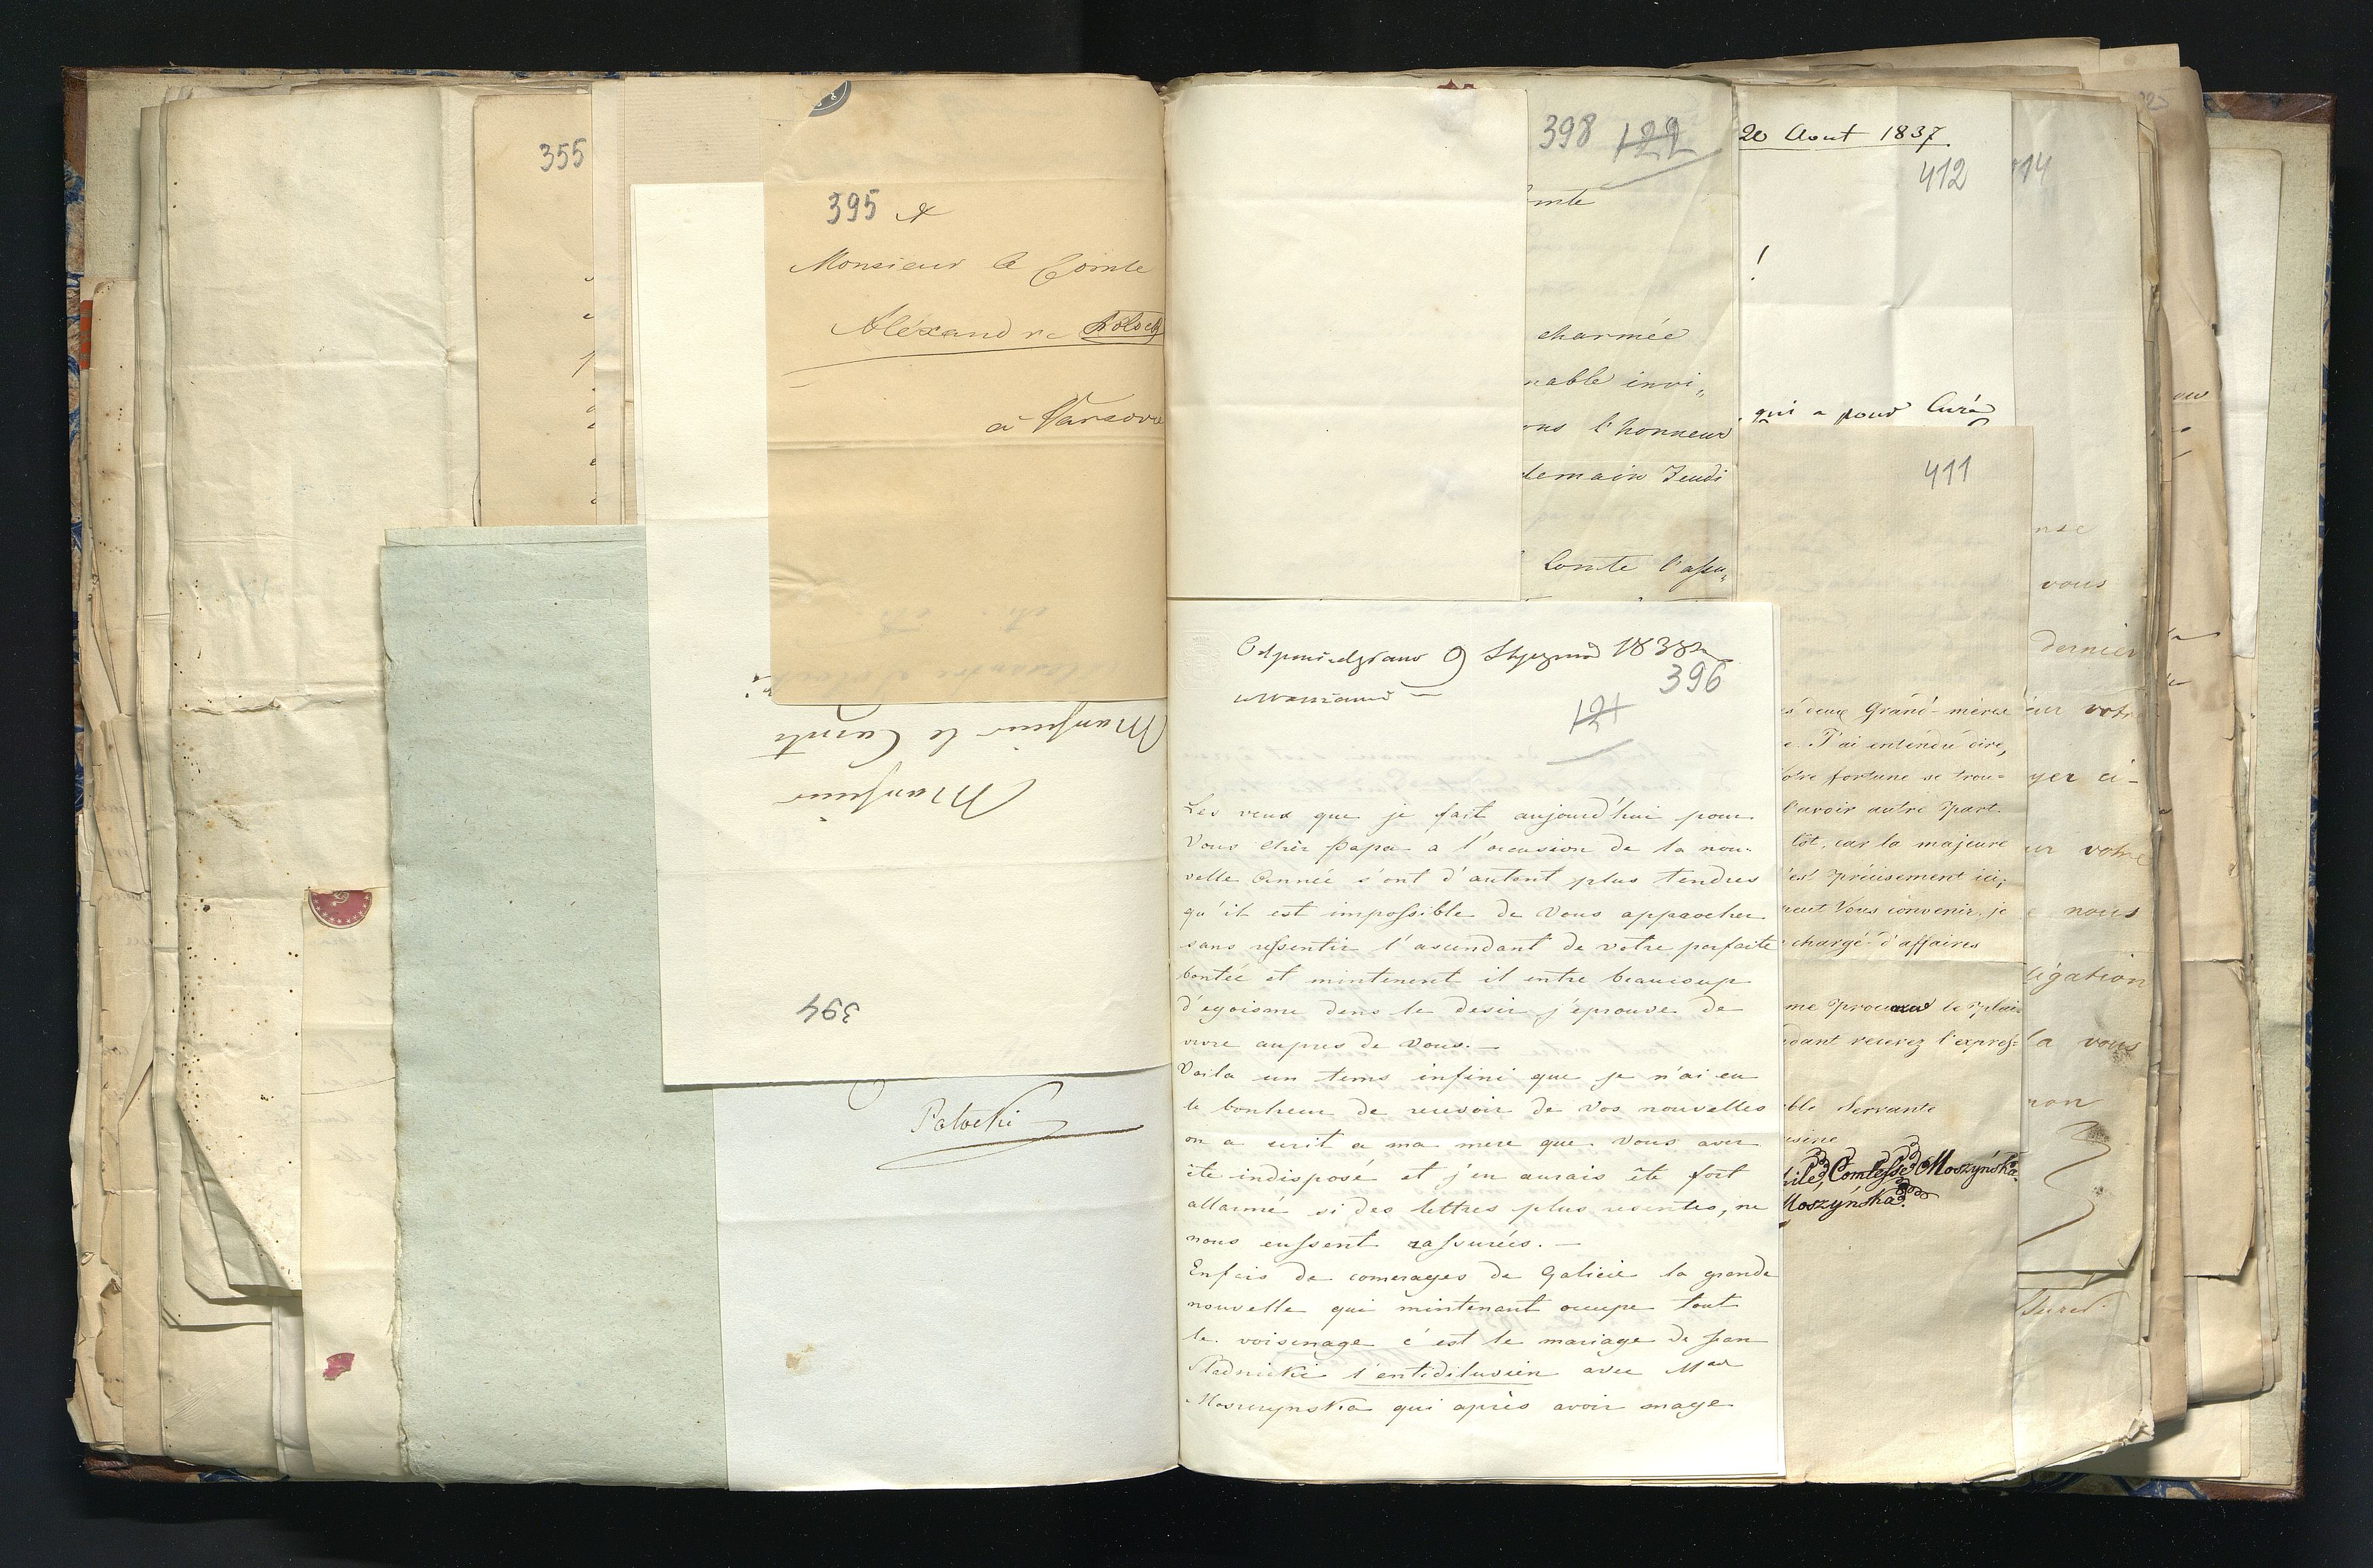 355
395 A
Monsieur le Comte
Aléxandre Potocki
à Varsovie
Monsieur
Monsieur le Comte
394
Potocki
398 122
charmée
nable invi„
ons l'honneur
demain Jeudi
Comte l'assu„
20 Aout 1837
412
!
qui a pour Curé
411
es deux Grand-meres
e. J'ai entendu dire,
otre fortune se trou=
l'avoir autre part.
tôt, car la majeure
précisement ici;
peut Vous convenir, je
chargé d'affaires
me le plai
dant recevez l'expres=
ble Servante
Comtesse Moszyńska
Moszyńska
nse
vous
dernier
votre
yer ci-
ur votre
nous
ligation
la vous
Odpowiedziano 9 Stycznia 1838
396
121
Les veux que je fait aujourd'hui pour
Vous cher Papa a l'occasion de la nou-
velle Année s'ont d'autent plus tendres
qu'il est impossible de Vous approcher
sans ressentir l'ascendant de votre parfaite
bontée et mintenent il entre beaucoup
d'egoisme dens le desir j'eprouve de
vivre aupres de Vous.—
Voila un tems infini que je n'ai eu
le bonheur de recevoir de Vos nouvelles
on a ecrit a ma mere que Vous aver
ête indisposé et j'en aurais ête fort
allarmé si des lettres plus resentes, ne
nous eussent rassurées.—
Enfais de comerages de Galicie la grande
nouvelle qui mintenant occupe tout
le voisinage c'est le mariage de Jean
Stadnicki l'entidiluvien avec Mad
Moszczynska qui après avoir